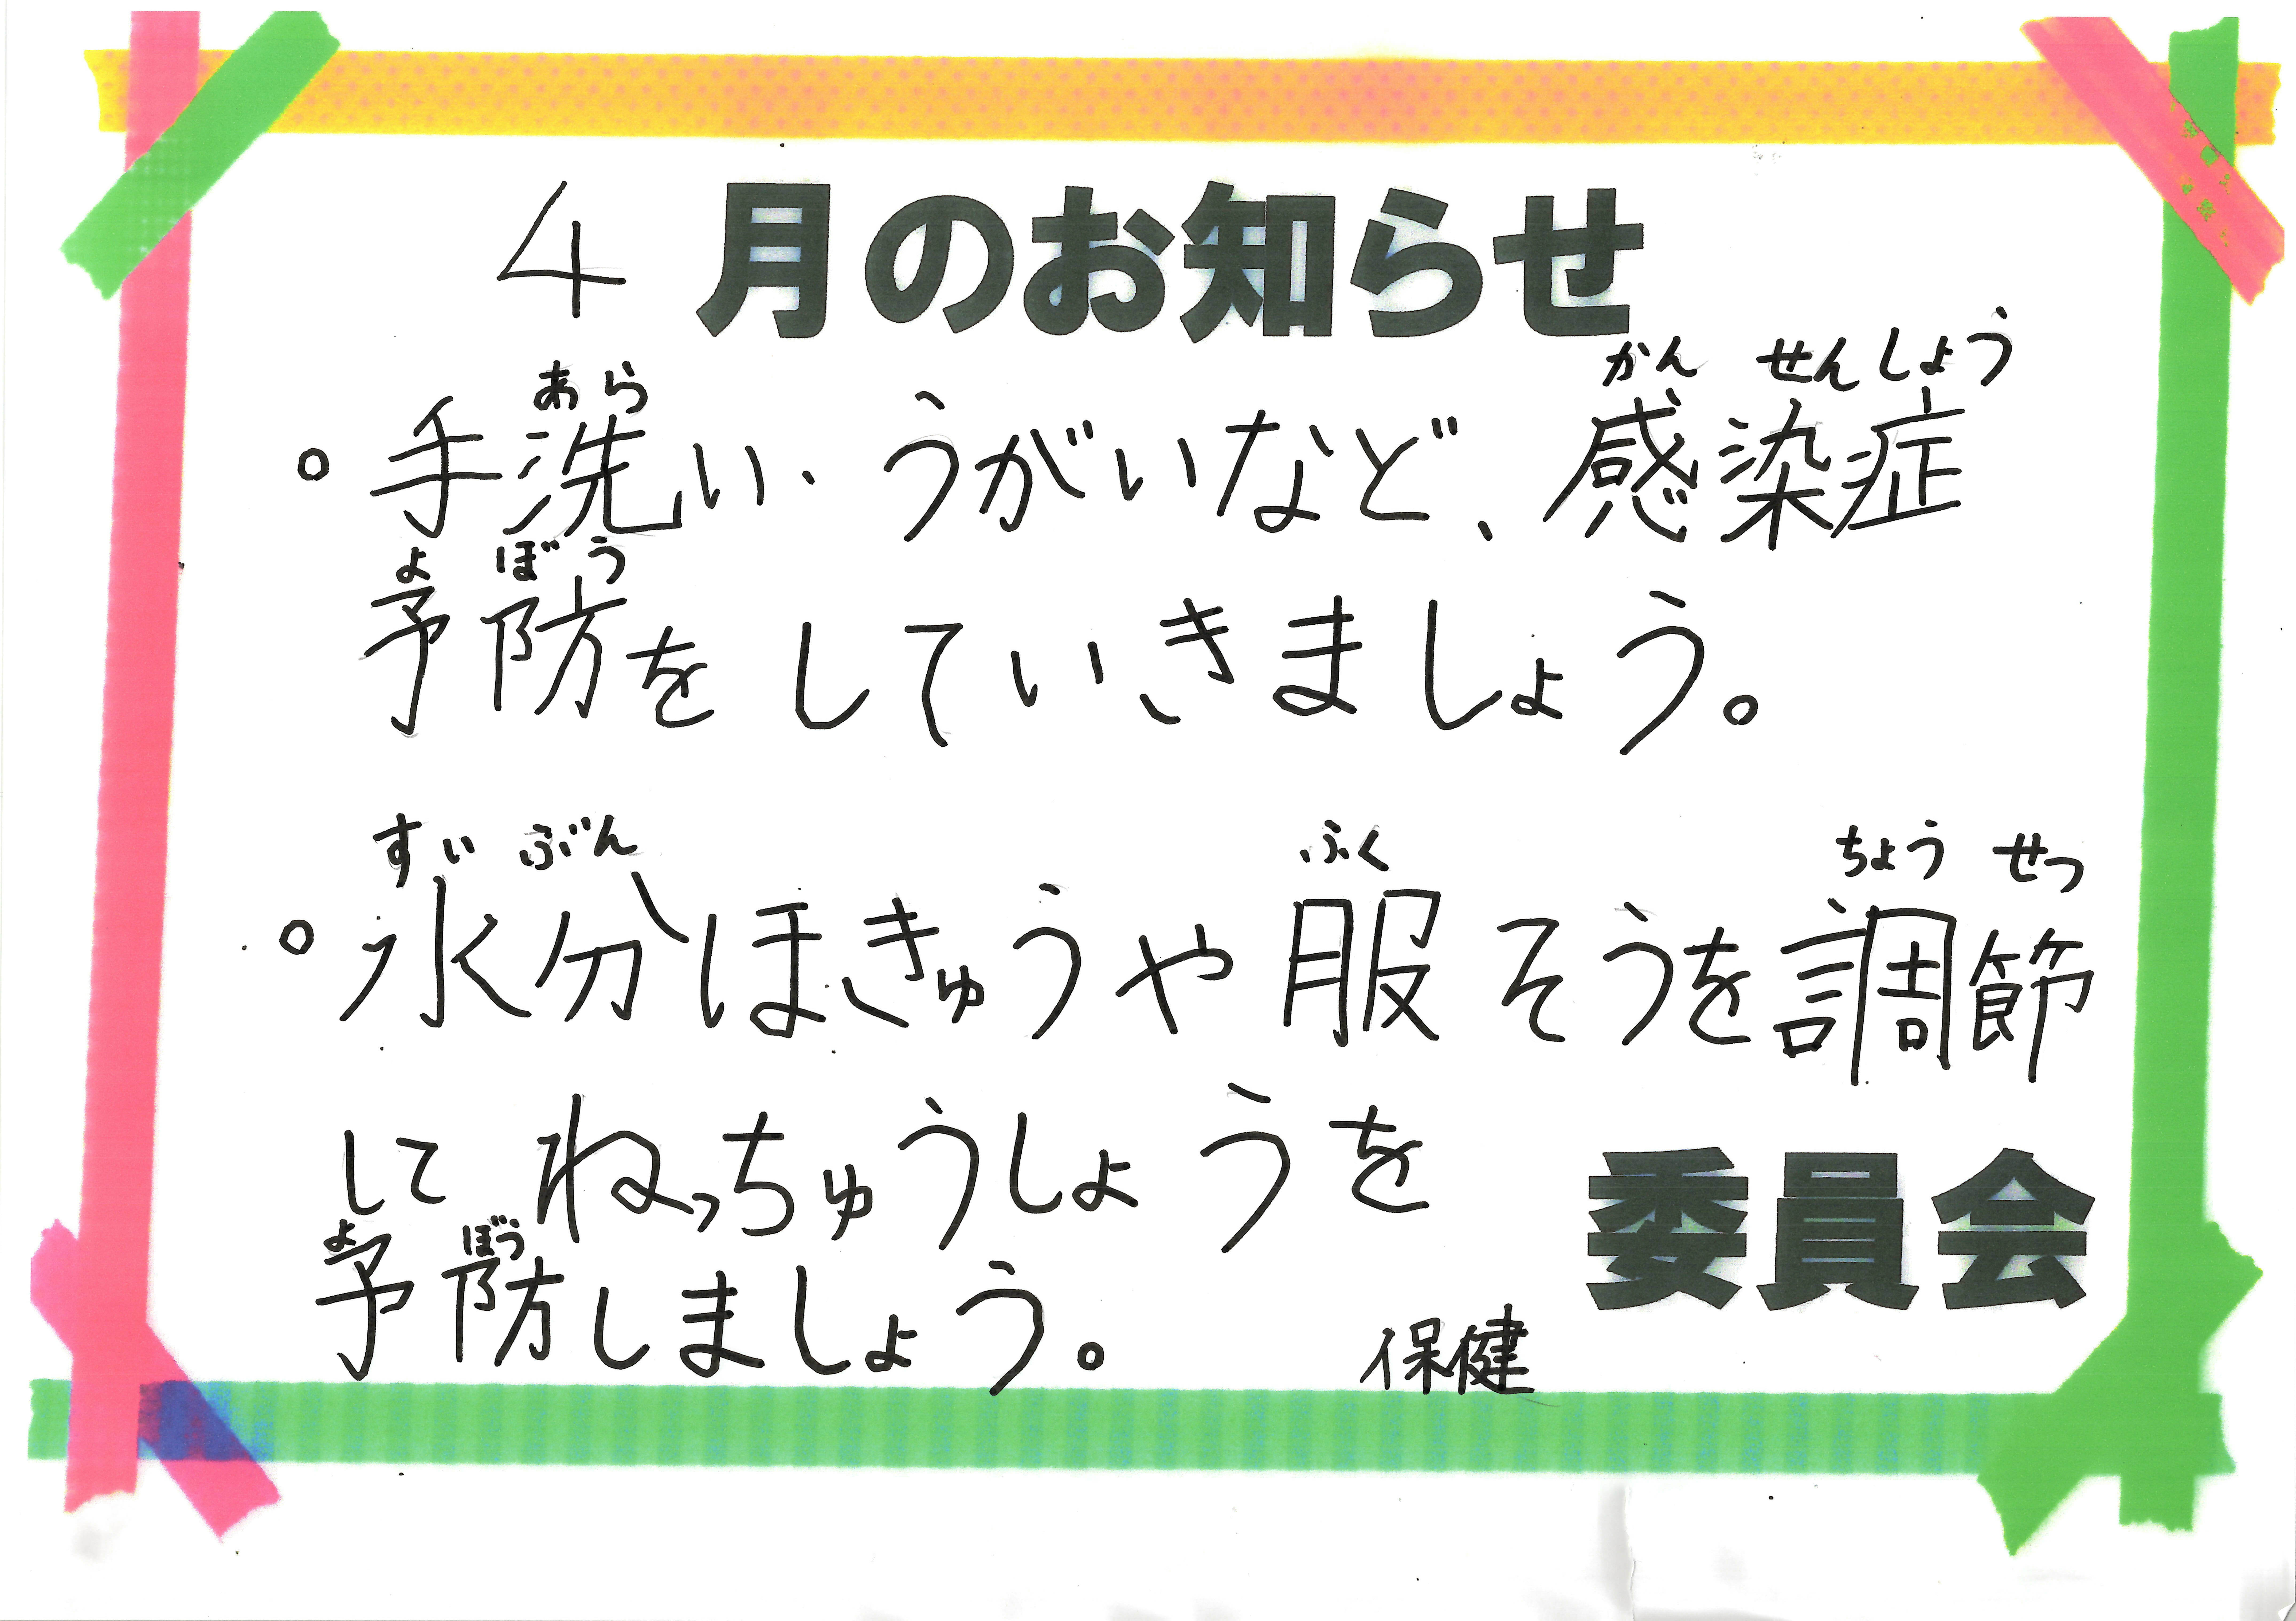 4月のお知らせ
あら かんせんしょう
。手洗い、うがいなど、感染症
よぼう
予防をしていきましょう。
すいぶん ふく ちょうせつ
。水分ほきゅうや服そうを調節
してねっちゅうしょうを
よぼう
予防しましょう。
保健 委員会